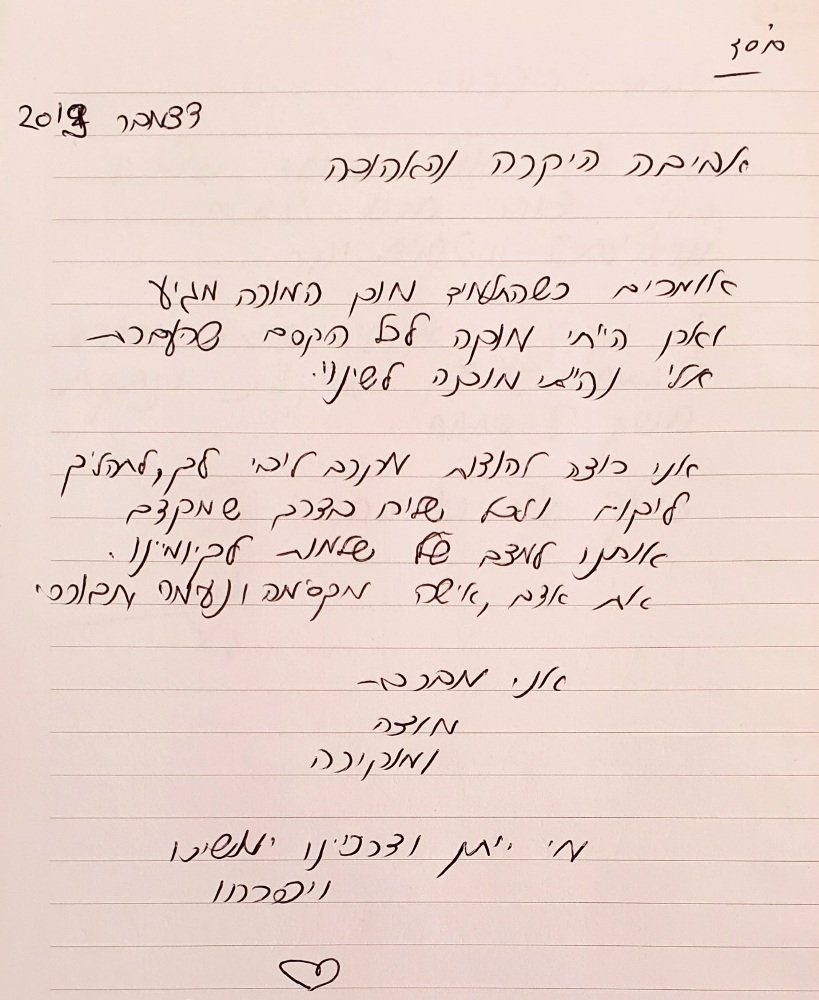 בסד
דצמבר 2019
אביבה היקרה והאהובה
אומרים כשהתלמיד מוכן המורה מגיע
ואכן הייתי מוכנה לכל הקסם שהעברת
אלי והייתי מוכנה לשינוי.
אני רוצה להודות מקרב ליבי לך, לתהליך
ליקום ולבא שליח בדרך שמקדם
אותנו למצב של שלמות לקיומינו.
את אדם, אישה מקסימה ונעימה
אני מברכת
מודה
ומוקירה
מי ייתן ודרכינו ימשיכו
ויפרחו